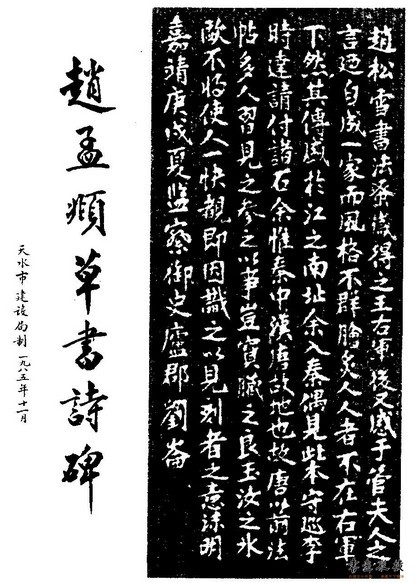 趙松雪書法蚤歲得之王右軍後又感于管夫人之
言廼自成一家而風格不群膾炙人人者不在右軍
下然其傳盛於江之南北余入秦偶見此本守巡李
時達請付諸石余惟秦中漢唐故地也故唐以前法
帖多人習見之参之以豈寶之良玉汝之氷
歟不將使人一快覩即因識之以見刻者之意明
嘉靖庚戌夏監察御史廬郡劉崙
趙孟頫草書詩碑
天水市建設局制 一九八五年十一月